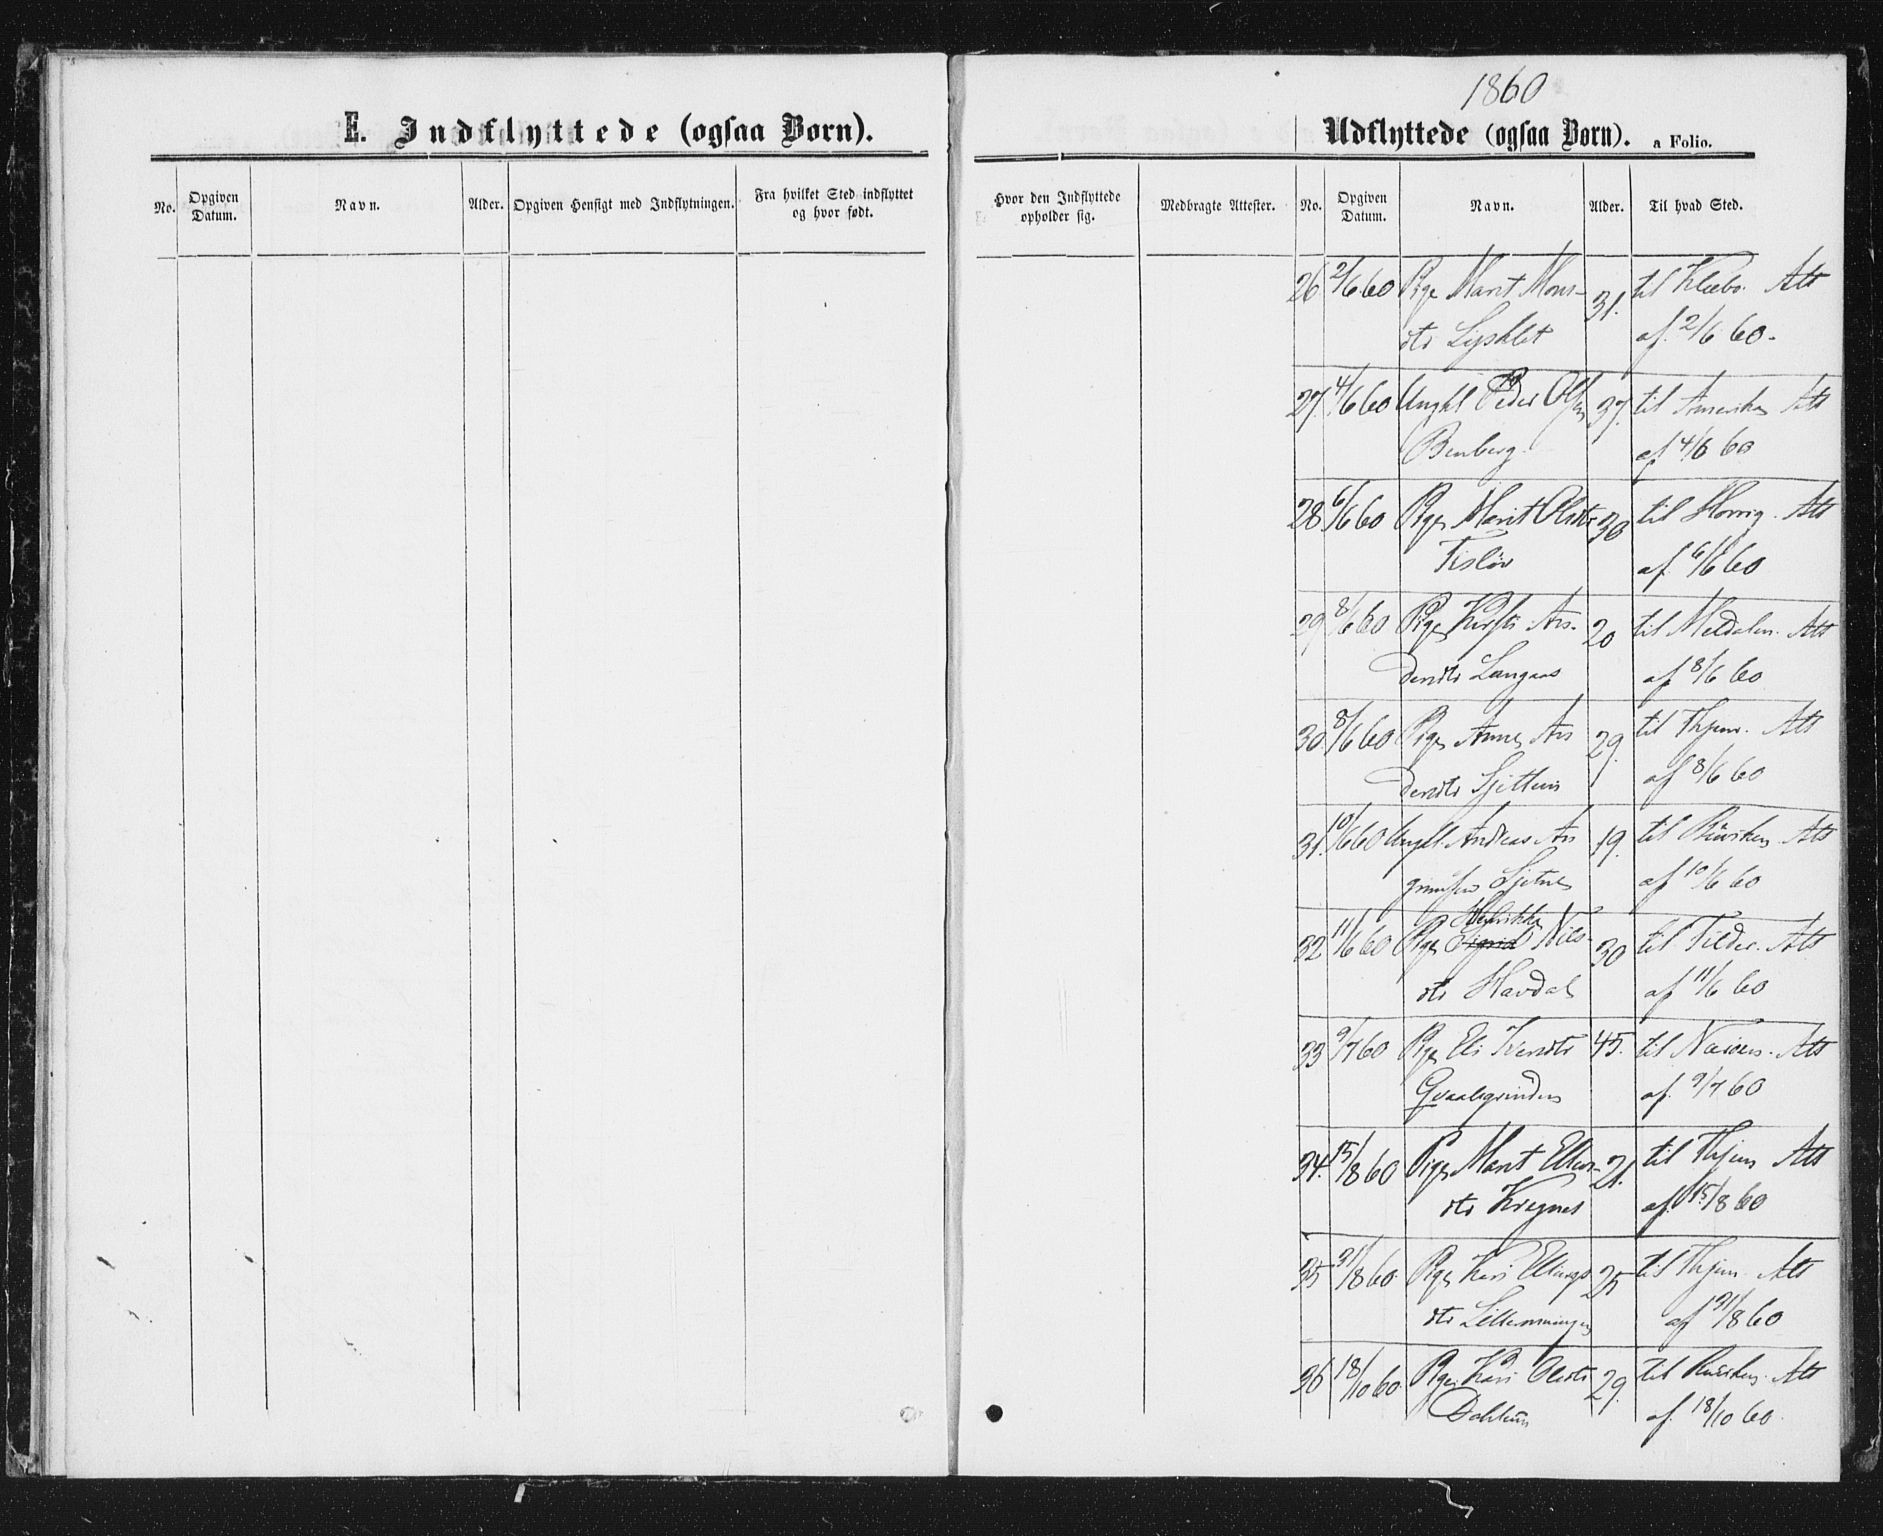 1860
E. Indflyttede (ogsaa Børn).
Udflyttede (ogsaa Børn). a Folio.
No. Opgiven Datum. Navn. Alder. Opgiven Hensigt med Indflytningen. Fra hvilket Sted indflyttet og hvor født.
Hvor den Indflyttede opholder sig. Medbragte Attester. No. Opgiven Datum. Navn. Alder. Til hvad Sted.
26 2/6 60 Pige Marit Mons- 31. til Klæbo. Att
dtr Lysklet af 2/6 60.
27. 4/6 60 Ungkl Peder Olsen 37. til Amerika Att
Benberg. af 4/6 60
28 6/6 60 Pige Marit Olsdtr 30 til Att
Tisløv af 6/6 60
29 8/6 60 Pige Kirsti Ars- 20 til Meldalen. Att
dendtr Langaas af 8/6 60
30 8/6 60 Pige Anne Ars 29. til Thjem. Att
dendtr af 8/6 60
31. 10/6 60 Ungkl. Andreas Arn 19. til Att
grimsen Sjetne af 10/6 60
32 11/6 60 Pige Sigrid Nils- 30 til Tilder. Att
dtr Havdal af 11/6 60
33 9/7 60 Pige Eli Iversdtr 45. til Att
Qvaalsgrinden af. 9/7 60
34. 15/8 60 Pige Marit Ellin- 21. til Thjem Att
dtr Kregnes af. 15/8 60
35 31/8 60. Pige Kari Ellings 25 til Thjem. Att
dtr af 31/8 60
36 18/10 60 Pige Kari Olsdtr 29. til Att
af. 18/10 60.